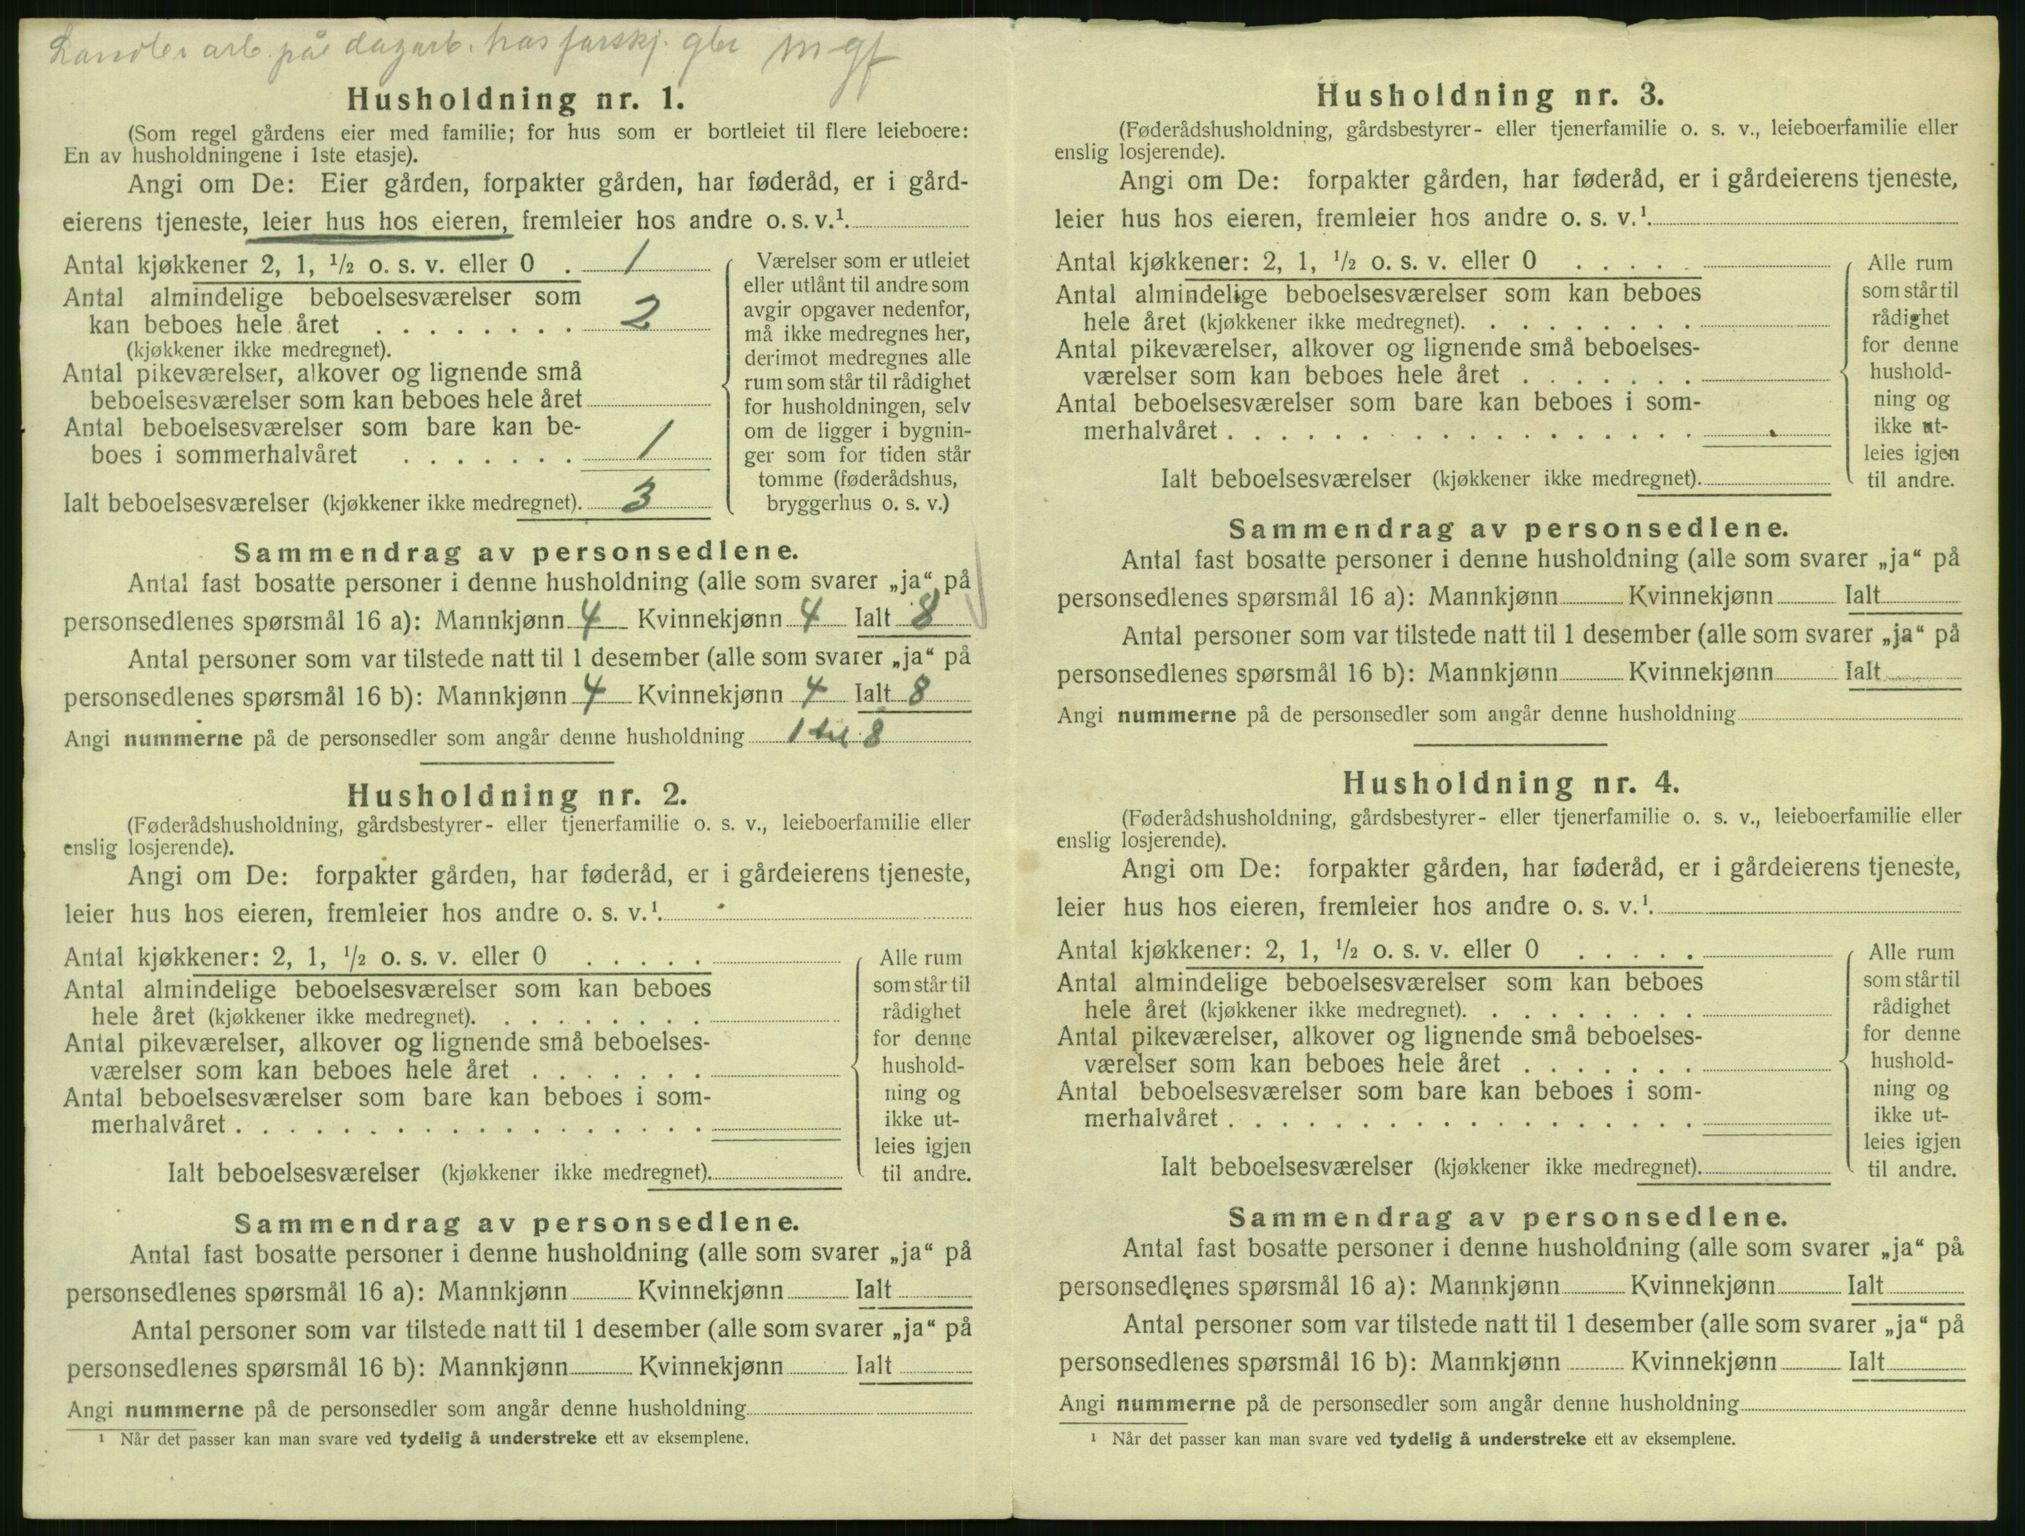 Landbr arb. på dagarb. hos forskj. gbr m gf
Husholdning nr. 1.
(Som regel gårdens eier med familie; for hus som er bortleiet til flere leieboere:
En av husholdningene i 1ste etasje).
Angi om De: Eier gården, forpakter gården, har føderåd, er i gård-
eierens tjeneste, leier hus hos eieren, fremleier hos andre o. s. v.¹
Antal kjøkkener 2, 1, ½ o. s. v. eller 0 . 1
Antal almindelige beboelsesværelser som
kan beboes hele året . . . . . . . . 2
(kjøkkener ikke medregnet).
Antal pikeværelser, alkover og lignende små
beboelsesværelser som kan beboes hele året
Antal beboelsesværelser som bare kan be-
boes i sommerhalvåret . . . . . . . 1
Ialt beboelsesværelser (kjøkkener ikke medregnet). 3
Værelser som er utleiet
eller utlånt til andre som
avgir opgaver nedenfor,
må ikke medregnes her,
derimot medregnes alle
rum som står til rådighet
for husholdningen, selv
om de ligger i bygnin-
ger som for tiden står
tomme (føderådshus,
bryggerhus o. s. v.)
Sammendrag av personsedlene.
Antal fast bosatte personer i denne husholdning (alle som svarer „ja“ på
personsedlenes spørsmål 16 a): Mannkjønn 4 Kvinnekjønn 4 Ialt 8
Antal personer som var tilstede natt til 1 desember (alle som svarer „ja“ på
personsedlenes spørsmål 16 b): Mannkjønn 4 Kvinnekjønn 4 Ialt 8
Angi nummerne på de personsedler som angår denne husholdning 1 til 8
Husholdning nr. 2.
(Føderådshusholdning, gårdsbestyrer- eller tjenerfamilie o. s. v., leieboerfamilie eller
enslig losjerende).
Angi om De: forpakter gården, har føderåd, er i gårdeierens tjeneste,
leier hus hos eieren, fremleier hos andre o. s. v.¹
Antal kjøkkener: 2, 1, ½ o. s. v. eller 0 . . . . .
Antal almindelige beboelsesværelser som kan beboes
hele året (kjøkkener ikke medregnet). . . . . . . . .
Antal pikeværelser, alkover og lignende små beboelses-
værelser som kan beboes hele året . . . . . . .
Antal beboelsesværelser som bare kan beboes i som-
merhalvåret . . . . . . . . . . . . . . . . . .
Ialt beboelsesværelser (kjøkkener ikke medregnet).
Alle rum
som står til
rådighet
for denne
hushold-
ning og
ikke ut-
leies igjen
til andre.
Sammendrag av personsedlene.
Antal fast bosatte personer i denne husholdning (alle som svarer „ja“ på
personsedlenes spørsmål 16 a): Mannkjønn Kvinnekjønn Ialt
Antal personer som var tilstede natt til 1 desember (alle som svarer „ja“ på
personsedlenes spørsmål 16 b): Mannkjønn Kvinnekjønn Ialt
Angi nummerne på de personsedler som angår denne husholdning
¹ Når det passer kan man svare ved tydelig å understreke ett av eksemplene.
Husholdning nr. 3.
(Føderådshusholdning, gårdsbestyrer- eller tjenerfamilie o. s. v., leieboerfamilie eller
enslig losjerende).
Angi om De: forpakter gården, har føderåd, er i gårdeierens tjeneste,
leier hus hos eieren, fremleier hos andre o. s. v.¹
Antal kjøkkener: 2, 1, ½ o. s. v. eller 0 . . . . .
Antal almindelige beboelsesværelser som kan beboes
hele året (kjøkkener ikke medregnet). . . . . . . . .
Antal pikeværelser, alkover og lignende små beboelses-
værelser som kan beboes hele året . . . . . . .
Antal beboelsesværelser som bare kan beboes i som-
merhalvåret . . . . . . . . . . . . . . . . . .
Ialt beboelsesværelser (kjøkkener ikke medregnet).
Alle rum
som står til
rådighet
for denne
hushold-
ning og
ikke ut-
leies igjen
til andre.
Sammendrag av personsedlene.
Antal fast bosatte personer i denne husholdning (alle som svarer „ja“ på
personsedlenes spørsmål 16 a): Mannkjønn Kvinnekjønn Ialt
Antal personer som var tilstede natt til 1 desember (alle som svarer „ja“ på
personsedlenes spørsmål 16 b): Mannkjønn Kvinnekjønn Ialt
Angi nummerne på de personsedler som angår denne husholdning
Husholdning nr. 4.
(Føderådshusholdning, gårdsbestyrer- eller tjenerfamilie o. s. v., leieboerfamilie eller
enslig losjerende).
Angi om De: forpakter gården, har føderåd, er i gårdeierens tjeneste,
leier hus hos eieren, fremleier hos andre o. s. v.¹.
Antal kjøkkener: 2, 1, ½ o. s. v. eller 0 . . . . .
Antal almindelige beboelsesværelser som kan beboes
hele året (kjøkkener ikke medregnet). . . . . . . . .
Antal pikeværelser, alkover og lignende små beboelses-
værelser som kan beboes hele året . . . . . . .
Antal beboelsesværelser som bare kan beboes i som-
merhalvåret . . . . . . . . . . . . . . . . . .
Ialt beboelsesværelser (kjøkkener ikke medregnet).
Alle rum
som står til
rådighet
for denne
hushold-
ning og
ikke ut-
leies igjen
til andre.
Sammendrag av personsedlene.
Antal fast bosatte personer i denne husholdning (alle som svarer „ja“ på
personsedlenes spørsmål 16 a): Mannkjønn Kvinnekjønn Ialt
Antal personer som var tilstede natt til 1 desember (alle som svarer „ja“ på
personsedlenes spørsmål 16 b): Mannkjønn Kvinnekjønn Ialt
Angi nummerne på de personsedler som angår denne husholdning
¹ Når det passer kan man svare ved tydelig å understreke ett av eksemplene.